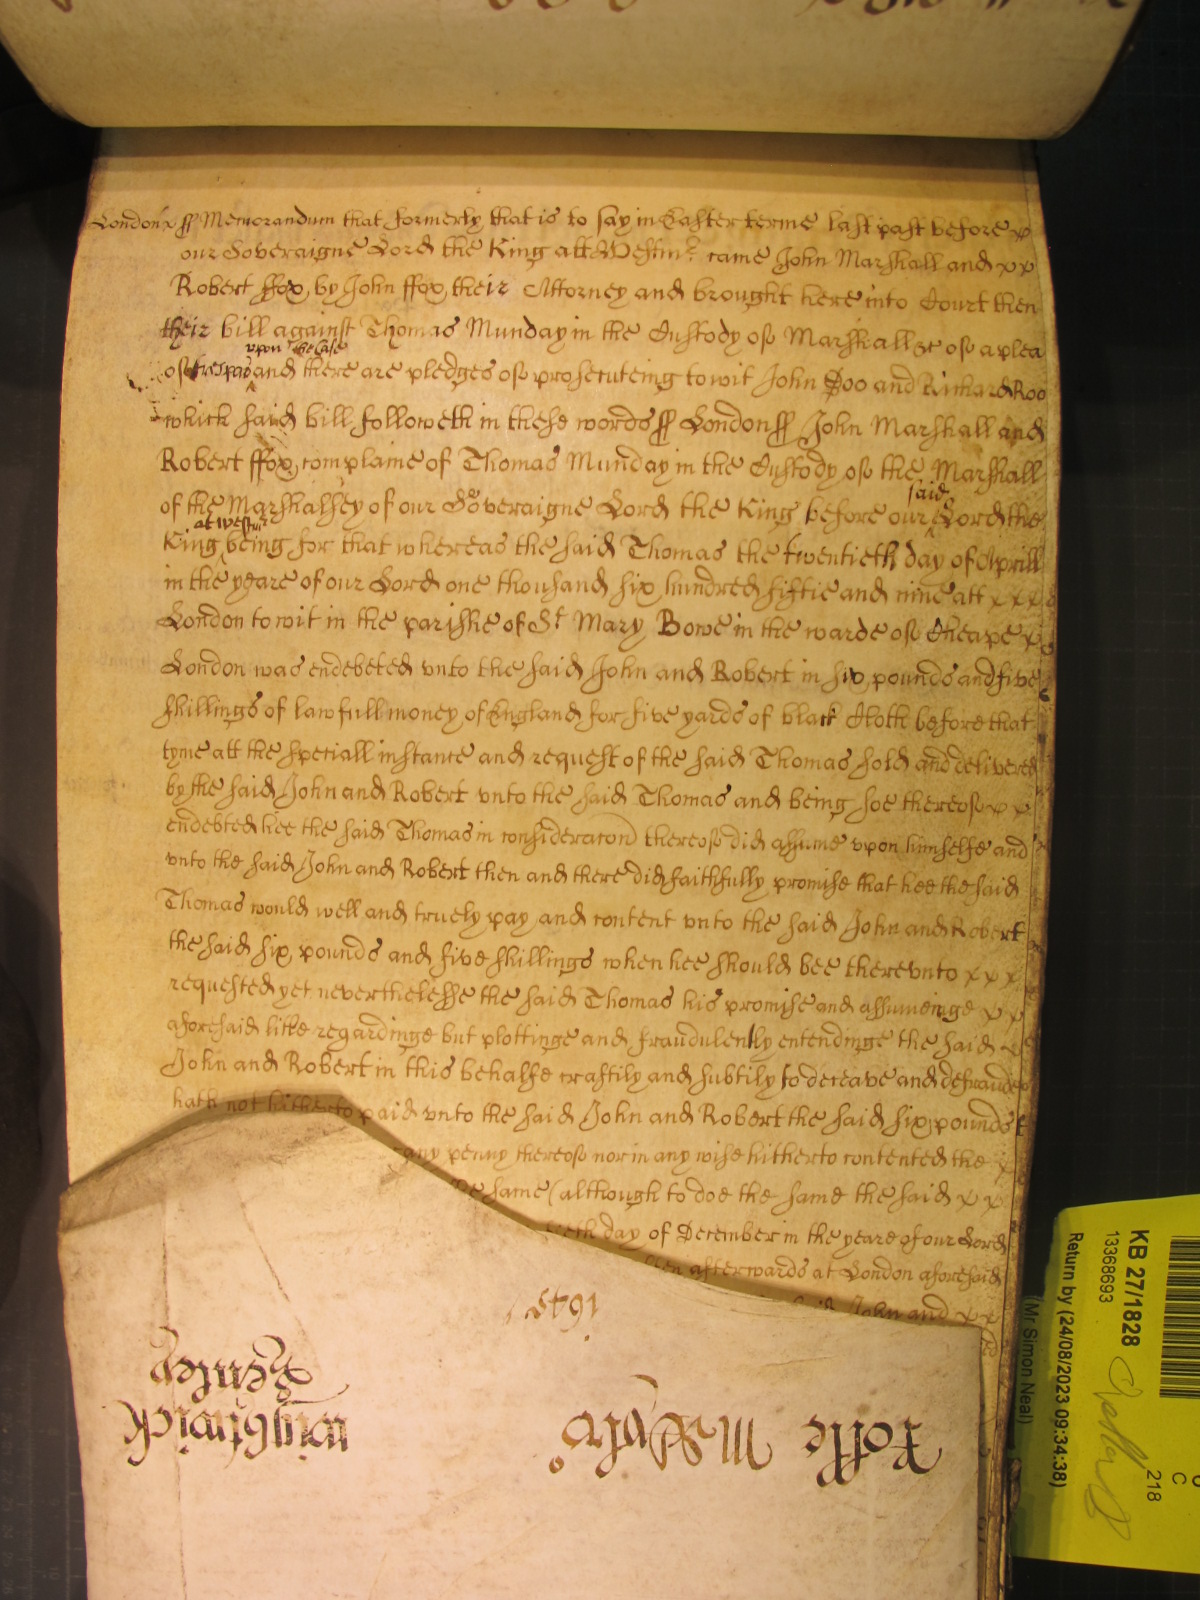 London ss Memorandum that formerly that is to say in Easter terme last past before
our Soveraigne Lord the King att Westmr. came John Marshall and
Robert ffox by John ffox their Attorney and brought here into Court then
their bill against Thomas Munday in the Custody of Marshall &c of a plea
upon the Case
of trespas and there are pledges of prosecuteing to wit John Doo and Richard Roo
which said bill followeth in these words ss London ss John Marshall and
Robert ffox complaine of Thomas Munday in the Custody of the Marshall
said
of the Marshalsey of our Soveraigne Lord the King before our Lord the
at Westmr
King being for that whereas the said Thomas the twentieth day of Aprill
in the yeare of our Lord one thousand six hundred fiftie and nine att
London to wit in the parishe of St Mary Bowe in the warde of Cheape
London was endebeted vnto the said John and Robert in six pounds and five
shillings of lawfull money of England for five yards of black Cloth before that
tyme att the speciall instance and request of the said Thomas sold and delivered
by the said John and Robert vnto the said Thomas and being soe thereof
endebted hee the said Thomas in consideracon thereof did assume vpon himselfe and
vnto the said John and Robert then and there did faithfully promise that hee the said
Thomas would well and truely pay and content vnto the said John and Robert
the said six pounds and five shillings when hee should bee therevnto
requested yet neverthelesse the said Thomas his promise and assumeinge
aforesaid litle regardinge but plottinge and fraudulently entendinge the said
John and Robert in this behalfe craftily and subtily to deceave and defraude
hath not hitherto paid vnto the said John and Robert the said six pounds
any penny thereof nor in any wise hitherto contented the
same (although to doe the same the said
day of December in the yeare of our Lord
afterwards at London aforesaid
said John and
Rolle
KB 27/1828
13368693
Return by (24/08/2023 09:34:38)
(Mr Simon Neal)
218
C